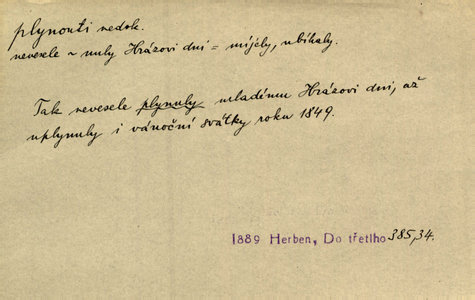 plynouti nedok.
nevesele ~ nuly Hrázovi dni = míjely, ubíhaly.
Tak nevesele plynuly mladému Hrázovi dni, až
uplynuly i vánoční svátky roku 1849.
1889 Herben, Do třetího 385,34.